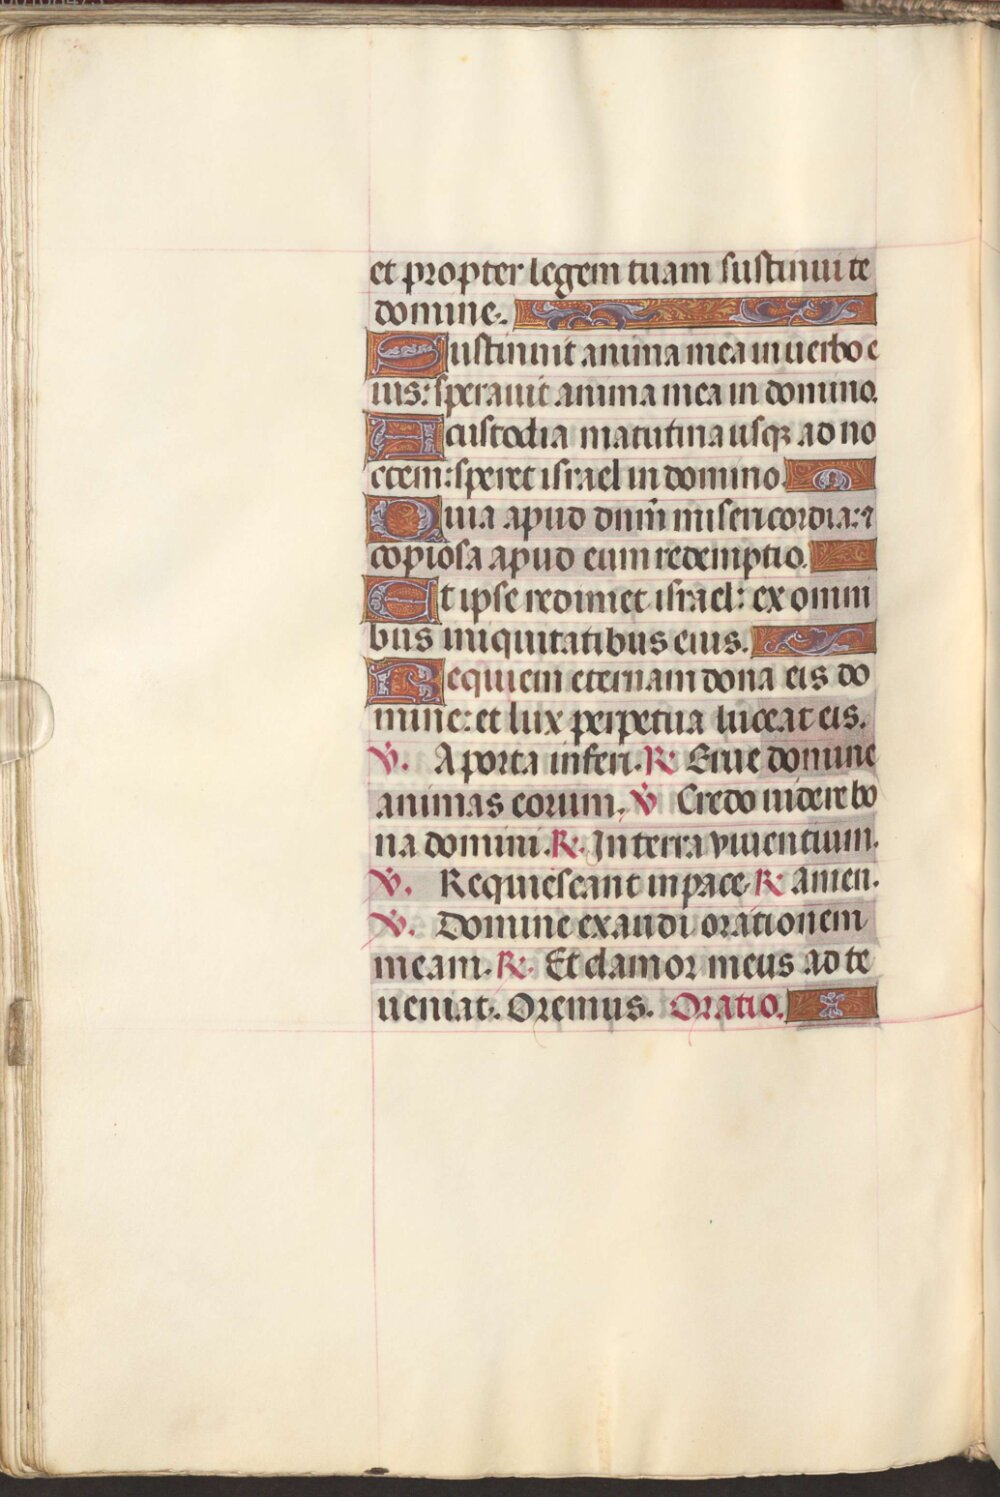 et propter legem tuam sustinui te
domine.
Sustinuit anima mea in uerbo e
ius: sperauit anima mea in domino.
A custodia matutina usqꝫ ad no
ctem: speret israel in domino.
Quia apud dnm̄ misericordia: ⁊
copiosa apud eum redemptio.
Et ipse redimet israel: ex omni
bus iniquitatibus eius.
Requiem eternam dona eis do
mine: et lux perpetua luceat eis.
℣. A porta inferi. ℟. Erue domine
animas eorum. ℣ Credo uidere bo
na domini. ℟. In terra viuentium.
℣. Requiescant in pace. ℟ amen.
℣. Domine exaudi orationem
meam. ℟. Et clamor meus ad te
ueniat. Oremus. Oratio.